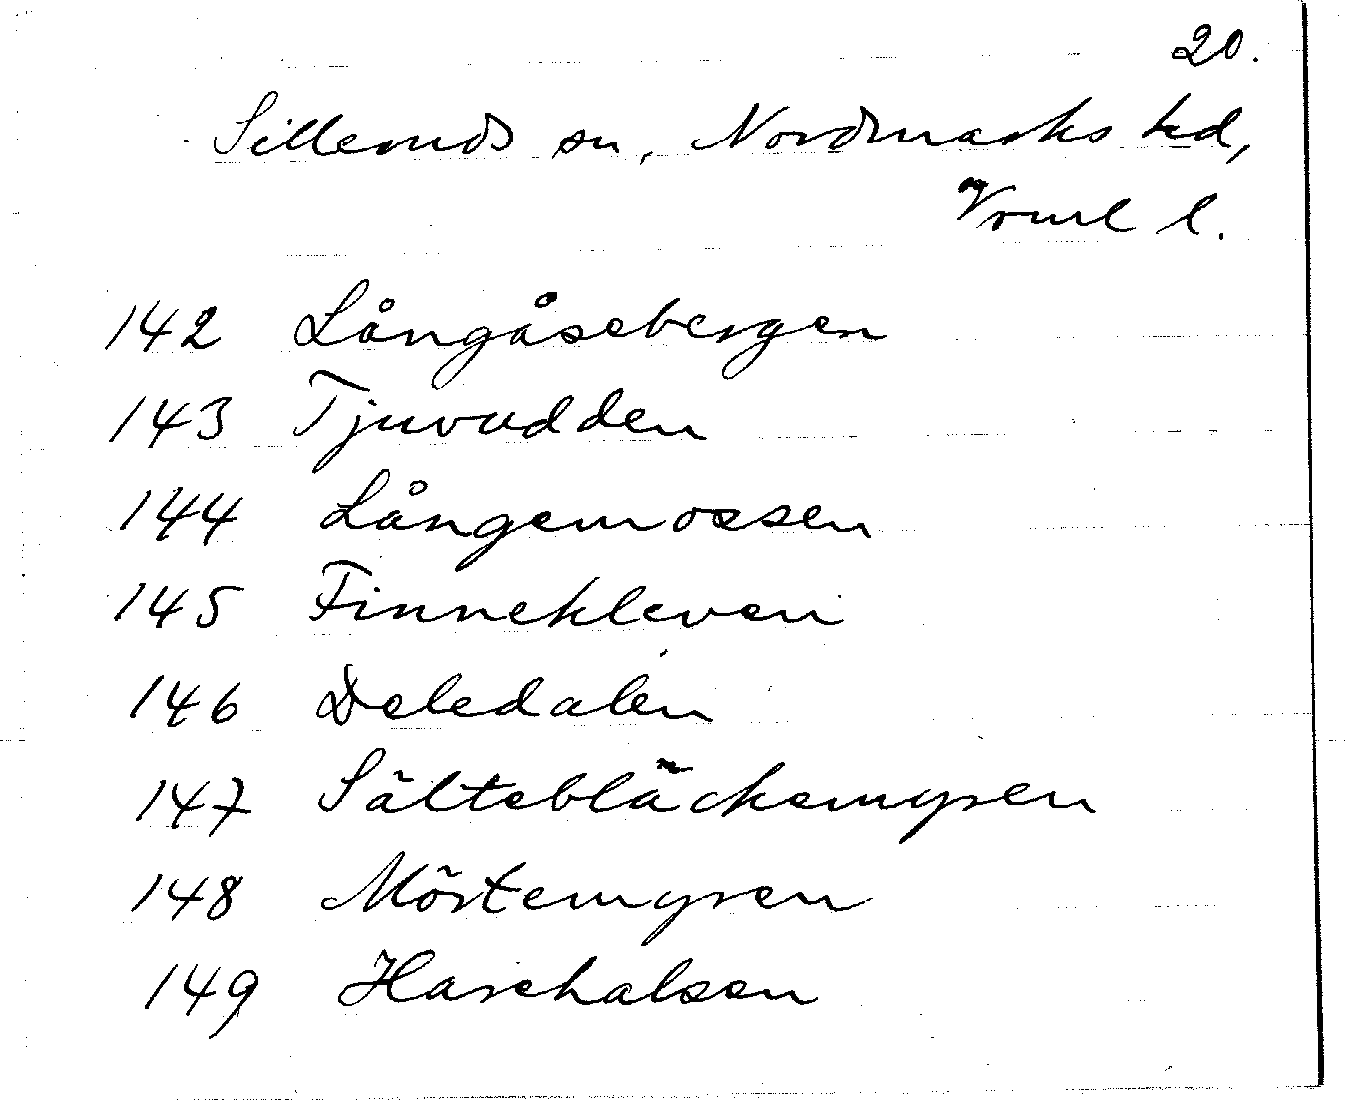 20.
Sillerud sn, Nordmarks hd,
Vrml l.
142 Långåsebergen
143 Tjuvudden
144 Långemossen
145 Finnekleven
146 Deledalen
147 Sältebläckemyren
148 Mörtemyren
149 Harehalsen